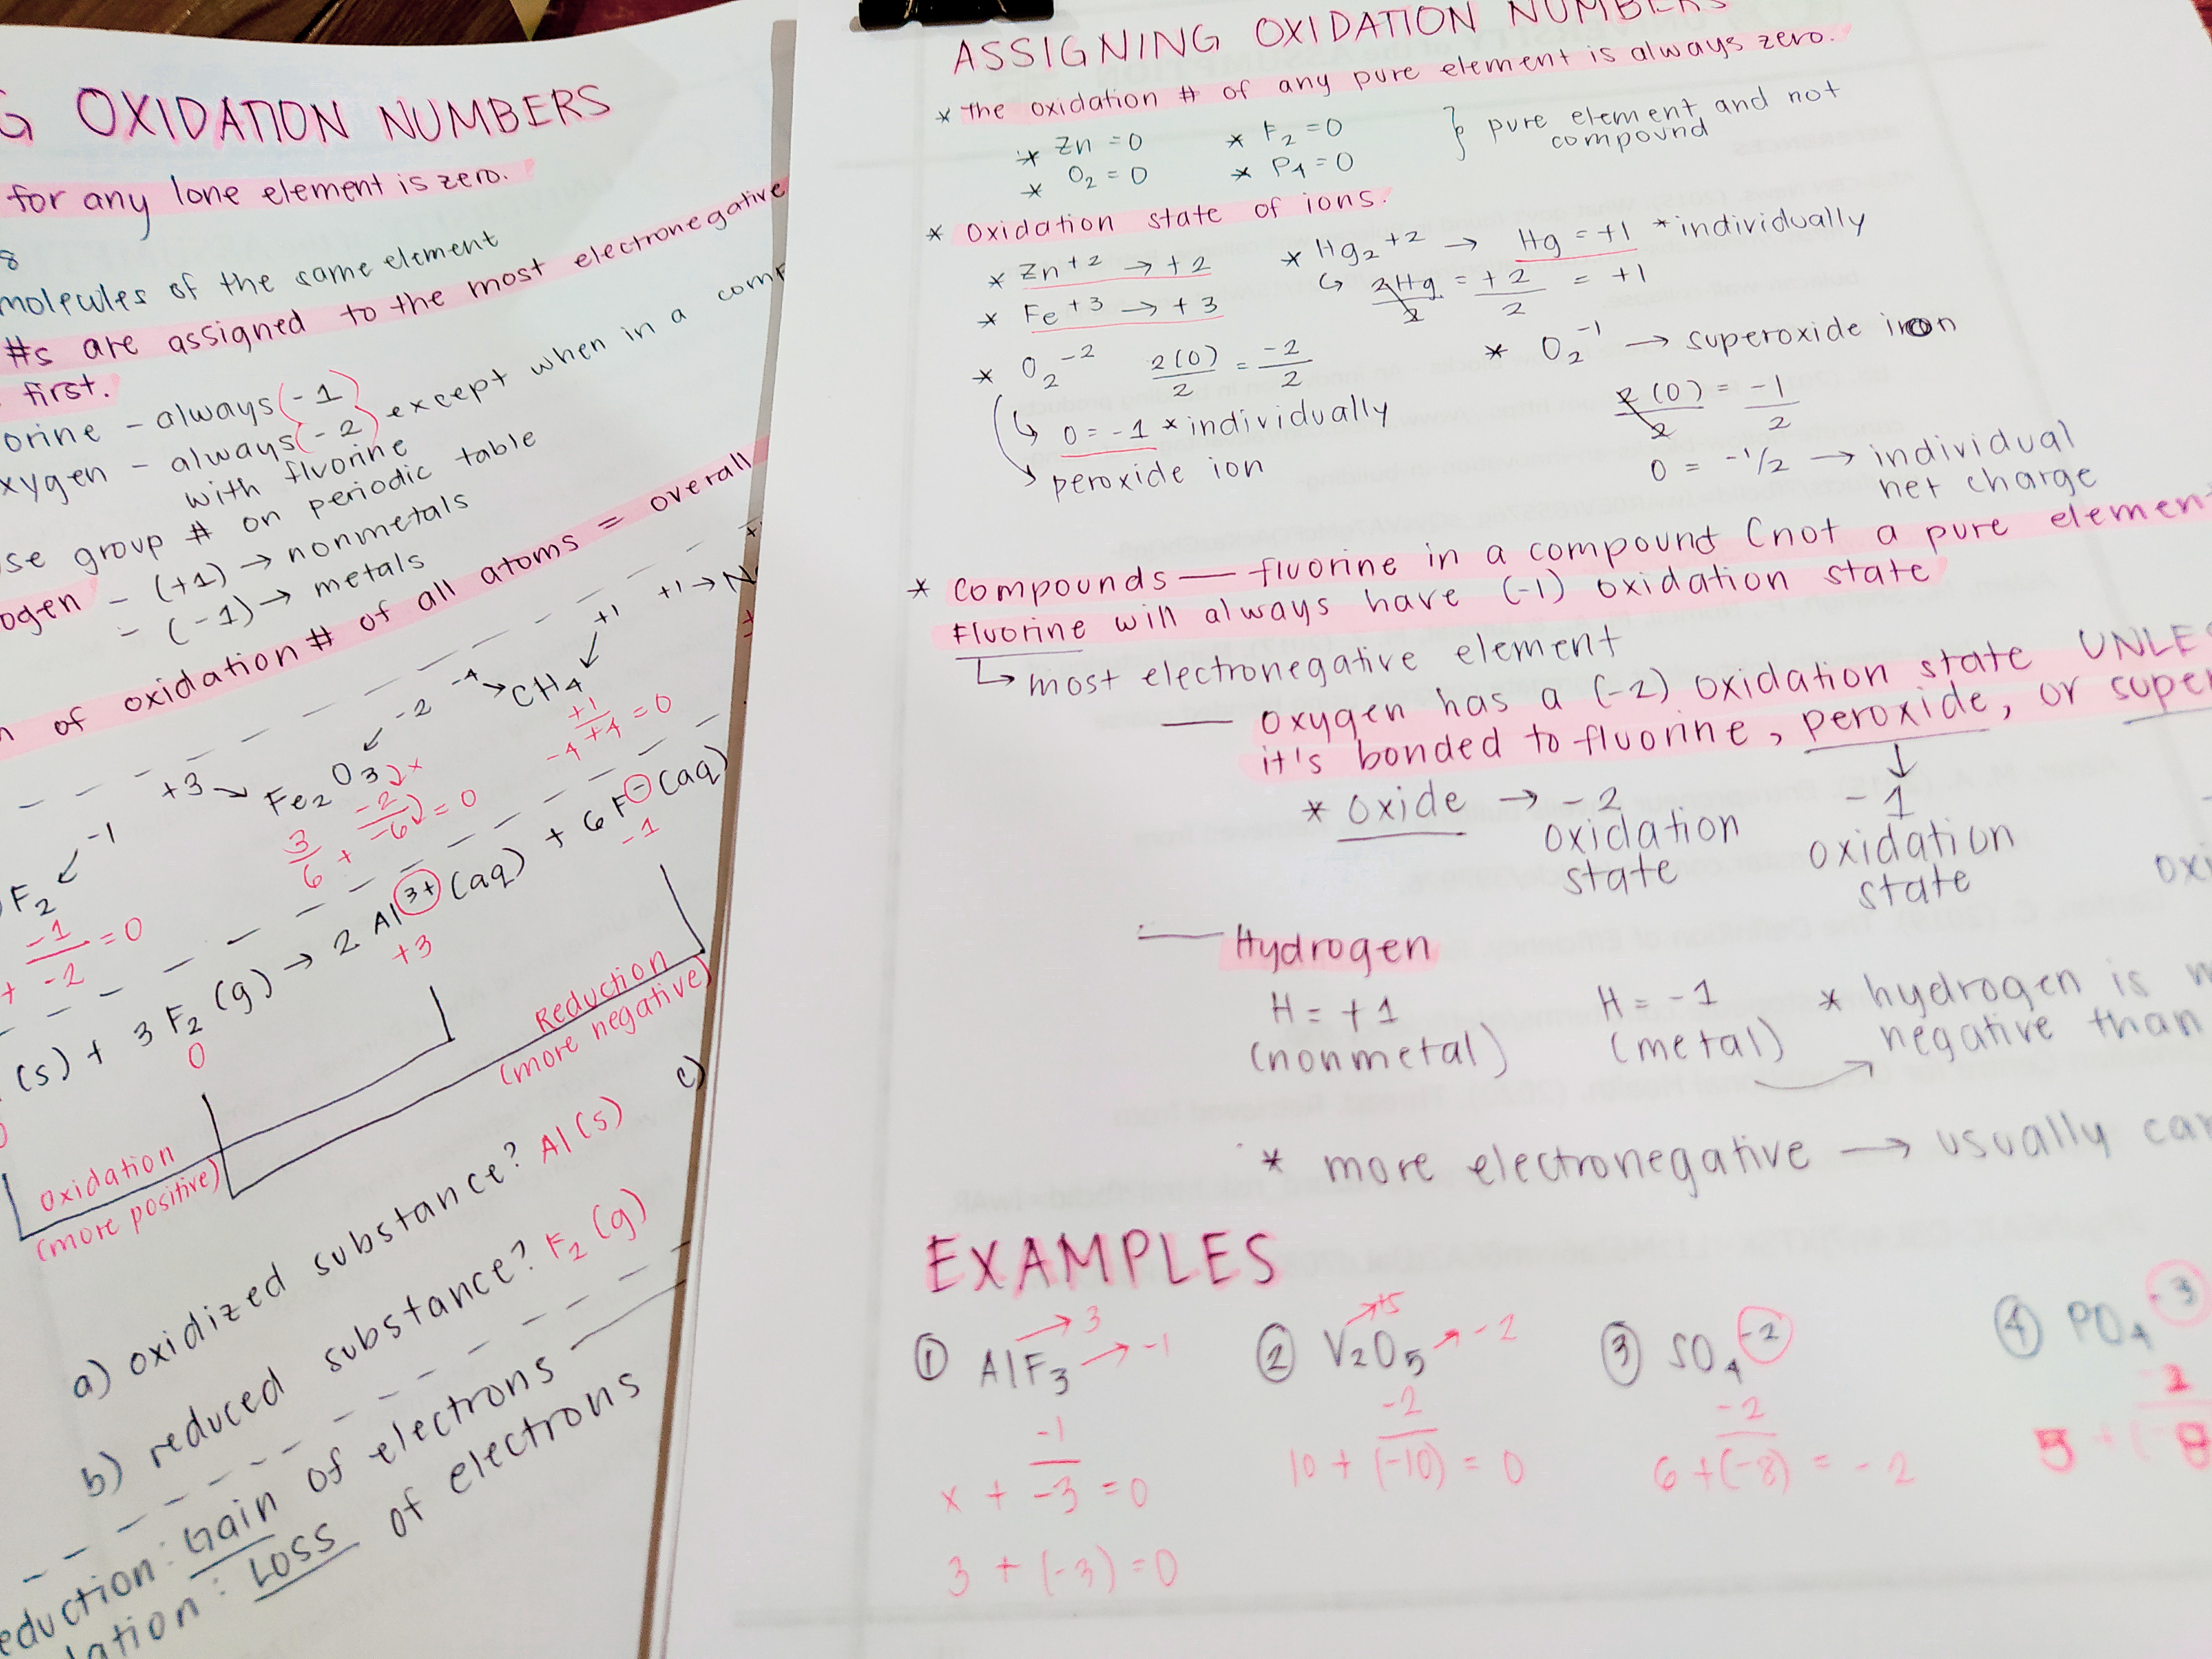 G OXIDATION NUMBERS
for any lone element is zero.
8
molecules of the same element
#s are assigned to the most electronegative
first.
orine - always (-1)
xygen - always (-2) } except when in a comp
with fluorine
se group # on periodic table
ogen - (+1) → nonmetals
- (-1) → metals
of oxidation # of all atoms = overall
+3 → Fe2O3 -2
3/6 + -2/-6 = 0
-4 → CH4 +1
-4 +1/+4 = 0
+1 → N
F2 -1
+ -1/-2 = 0
(s) + 3 F2 (g) → 2 Al 3+ (aq) + 6 F - (aq)
0 +3 -1
Oxidation
(more positive)
Reduction
(more negative)
a) oxidized substance? Al(s)
b) reduced substance? F2 (g)
c)
eduction: Gain of electrons
dation: Loss of electrons
ASSIGNING OXIDATION NUMBERS
* The oxidation # of any pure element is always zero.
* Zn = 0 * F2 = 0 } pure element and not
* O2 = 0 * P4 = 0 compound
* Oxidation state of ions.
* Zn+2 → +2 * Hg2+2 → Hg = +1 *individually
* Fe+3 → +3 ↳ 2Hg/2 = +2/2 = +1
* O2-2 2(O)/2 = -2/2 * O2-1 → superoxide ion
↳ O = -1 * individually 2(O)/2 = -1/2
↳ peroxide ion O = -1/2 → individual
net charge
* Compounds — fluorine in a compound (not a pure element
Fluorine will always have (-1) oxidation state
↳ most electronegative element
— oxygen has a (-2) oxidation state UNLES
it's bonded to fluorine, peroxide, or super
* oxide → -2 ↓ -1
oxidation oxidation
state state
oxi
— Hydrogen
H = +1 H = -1 * hydrogen is
(nonmetal) (metal) → negative than
* more electronegative → usually car
EXAMPLES
① AlF3 → 3 → -1
x + -1/-3 = 0
3 + (-3) = 0
② V2O5 → +5 → -2
10 + -2/(-10) = 0
③ SO4 -2
6 + -2/(-8) = -2
④ PO4 -3
5 + -2/(-8